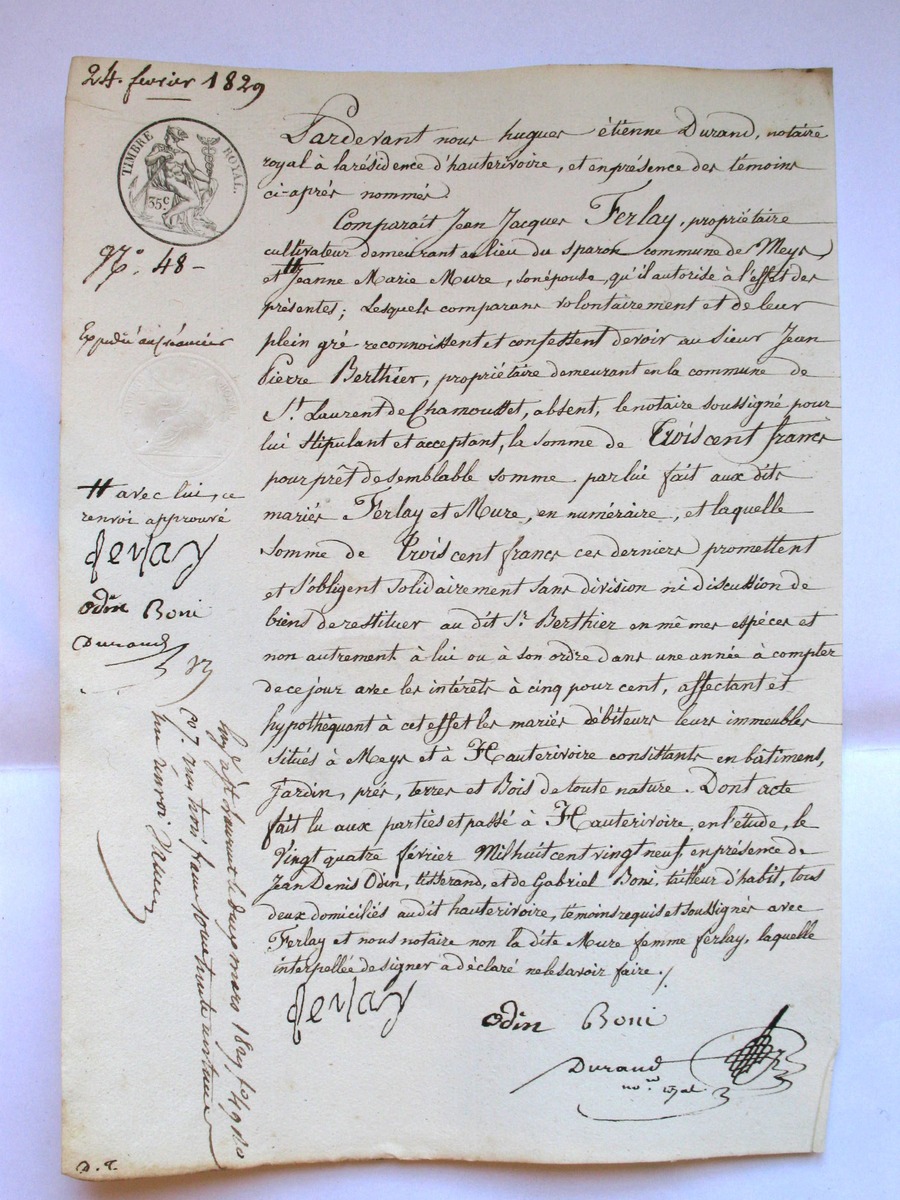 24. fevrier 1829
TIMBRE ROYAL.
35c.
N.º 48 -
Expédié au créancier
# avec lui, ce
renvoi approuvé
ferlay
odin Boni
Durand
Pardevant nous hugues étienne Durand, notaire
royal à la résidence d'hauterivoire, et en présence des témoins
ci-après nommés.
Comparait Jean Jacques Ferlay, propriétaire
cultivateur demeurant au lieu du sparon commune de Meys
et # Jeanne Marie Mure, son épouse, qu'il autorise à l'effet des
présentes; Lesquels comparans volontairement et de leur
plein gré reconnoissent et confessent devoir au sieur Jean
Pierre Berthier, propriétaire demeurant en la commune de
St. Laurent de Chamousset, absent, le notaire soussigné pour
lui stipulant et acceptant, la somme de Trois cent francs
pour prêt de semblable somme par lui fait aux dits
mariés Ferlay et Mure, en numéraire, et laquelle
somme de Trois cent francs ces derniers promettent
et s'obligent solidairement sans division ni discussion de
biens de restituer au dit Sr. Berthier en mêmes espéces et
non autrement à lui ou à son ordre dans une année à compter
de ce jour avec les intérêts à cinq pour cent, affectant et
hypothèquant à cet effet les mariés débiteurs leurs immeubles
situés à Meys et à Hauterivoire consistants en bâtiments,
jardin, prés, terres et Bois de toute nature. Dont acte
fait lu aux parties et passé à Hauterivoire, en l'étude, le
Vingt quatre février Mil huit cent vingt neuf, en présence de
Jean Denis Odin, tisserand, et de Gabriel Boni, tailleur d'habit, tous
deux domiciliés au dit hauterivoire, témoins requis et soussignés avec
Ferlay et nous notaire non la dite Mure femme ferlay, laquelle
interpellée de signer a déclaré ne le savoir faire ./
ferlay
odin Boni
Durand
no.re royal
mars 1829 fo 49
un renvoi
D. T.